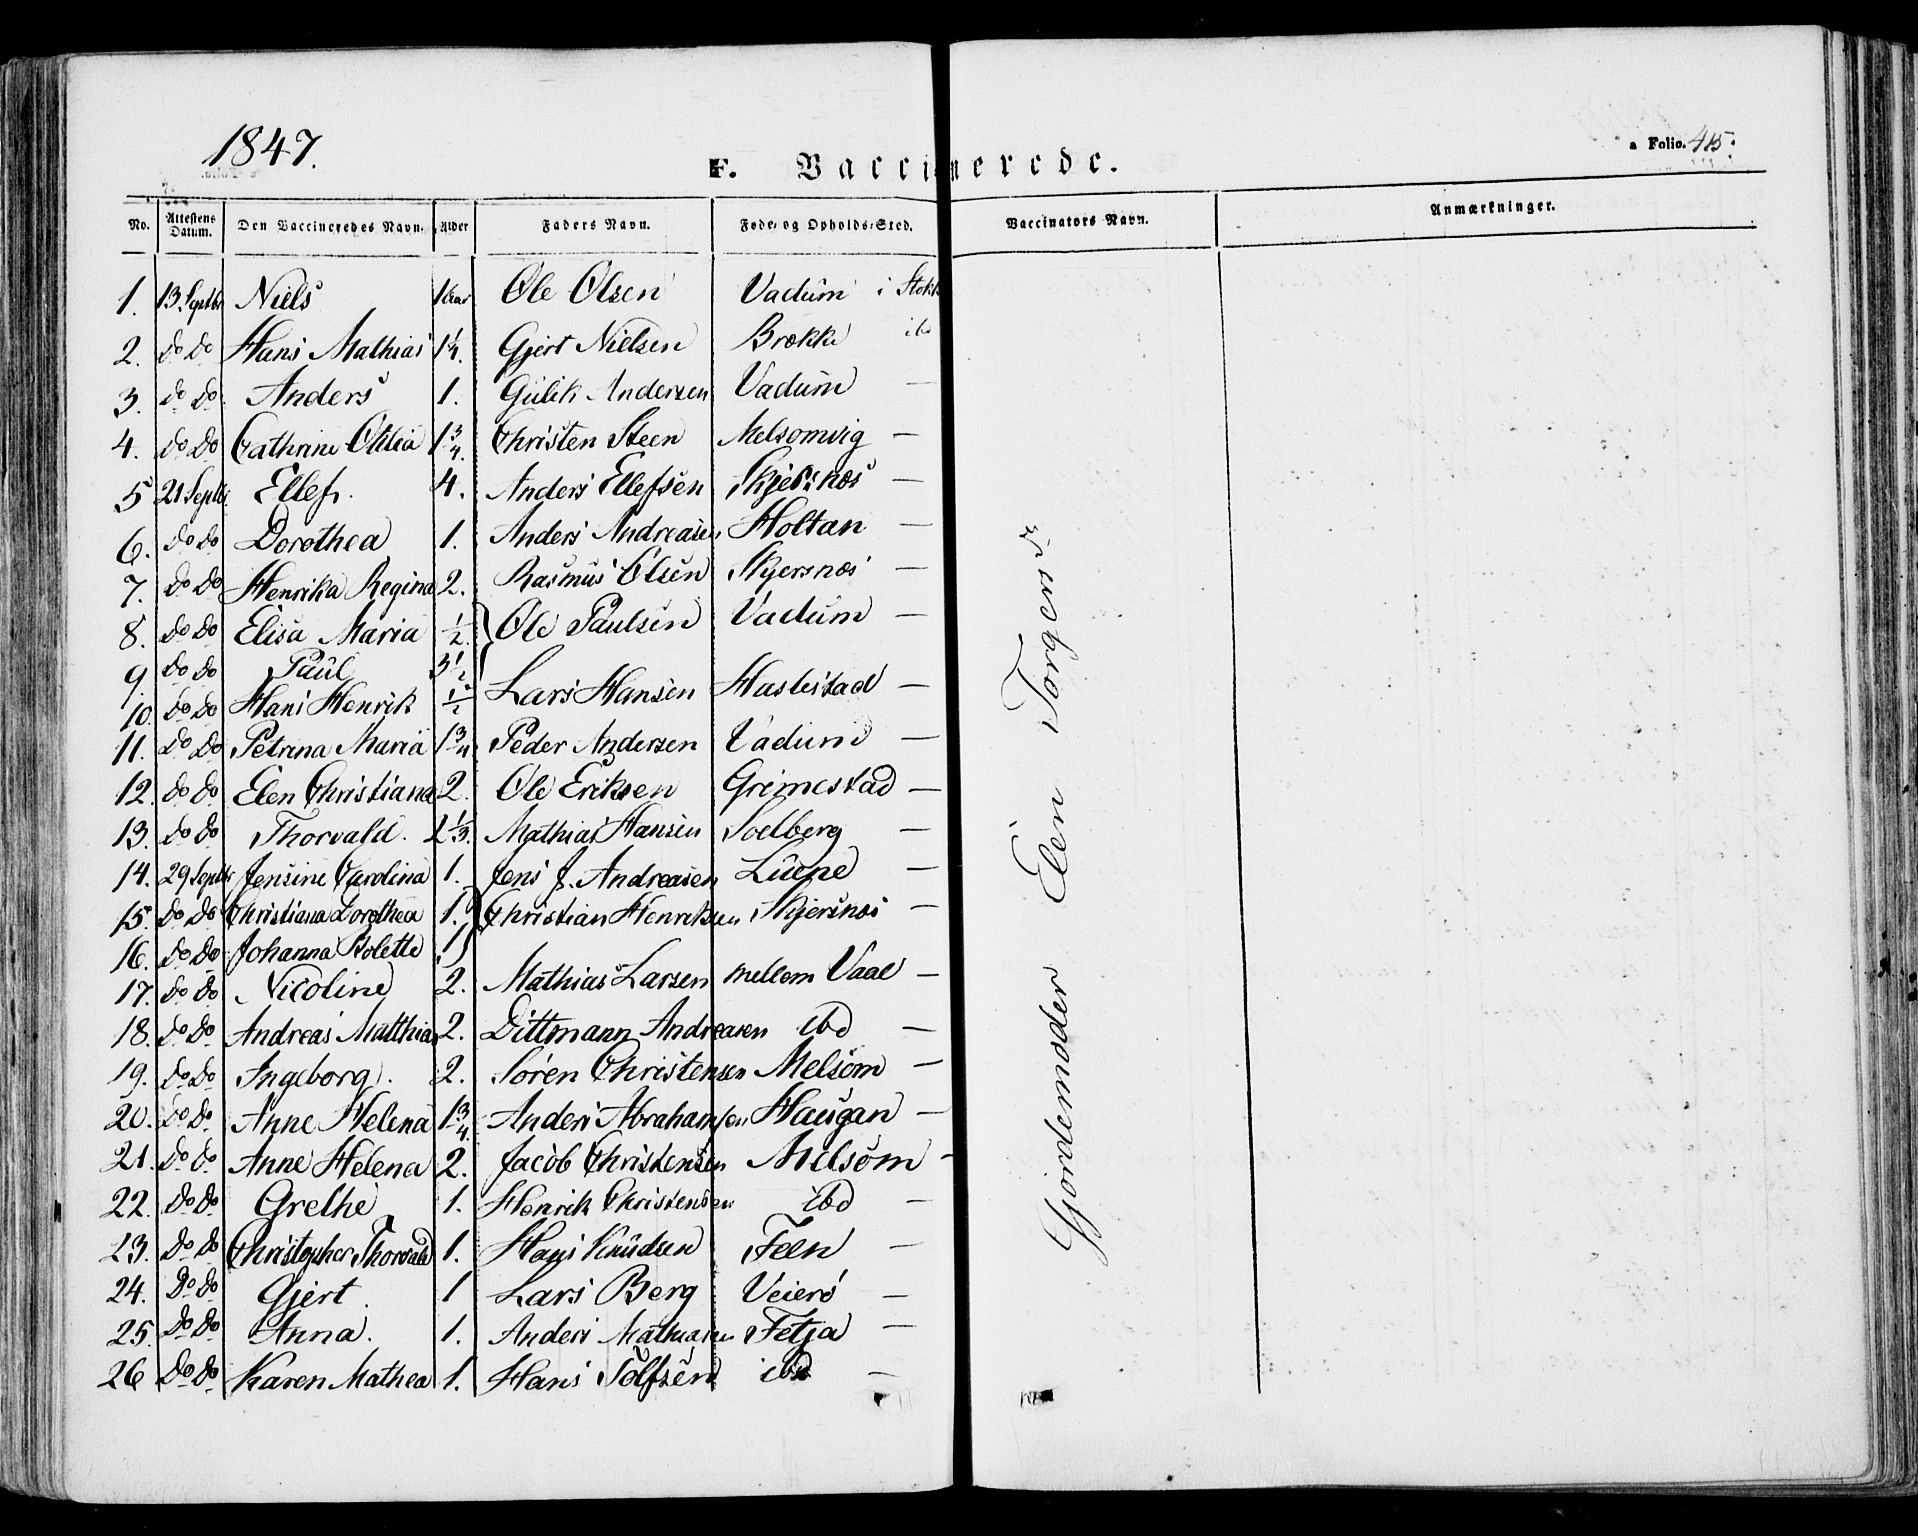 1847.
F. Vaccinerede.
a Folio. 415.
No. Attestens Datum. Den Vaccineredes Navn. Alder Faders Navn. Føde- og Opholds-Sted. Vaccinators Navn. Anmærkninger.
1. 13 Septbr Niels 1 Aar Ole Olsen Vadum i Stokk
2. do do Hans Mathias 1 1/4. Gjert Nielsen Brække ibd
3. do do Anders 1. Gulik Andersen Vadum —
4. do do Cathrine Othlia 1 3/4. Christen Steen Melsomvig —
5 21 Septbr. Ellef. 4. Anders Ellefsen Skjersnæs —
6. do do Dorothea 1. Anders Andreasen Holtan —
7. do do Henrika Regina 2. Rasmus Olsen Skjersnæs —
8. do do Elisa Maria 1/2 Ole Paulsen Vadum —
9 do do Paul 3 1/2
10. do do Hans Henrik 1/2 Lars Hansen Haslestad —
11. do do Petrina Maria 1 3/4 Peder Andersen Vadum —
12. do do Elen Christiana 2. Ole Eriksen Grimestad —
13. do do Thorvald. 2 1/3. Mathias Hansen Soelberg —
14. 29 Septbr Jensine Carolina 1. Jens J. Andreasen Luene —
15. do do Christiana Dorothea 1. Christian Henriksen Skjersnæs —
16. do do Johanna Bolette 1
17. do do Nicoline 2. Mathias Larsen mellem Vaae —
18. do do Andreas Matthias 2. Dittmann Andreasen ibd —
19. do do Ingeborg. 2. Søren Christensen Melsom —
20. do do Anne Helena 1 3/4. Anders Abrahamsen Haugan —
21. do do Anne Helena 2. Jacob Christensen Melsom -
22. do do Grethe 1. Henrik Christensen ibd —
23. do do Christopher Thorvald 1. Hans Knudsen Feen —
24. do do Gjert. 1 Lars Berg Veierø —
25. do do Anna. 1. Anders Mathiasen Fetja —
26 do do Karen Mathea 1. Hans Tolfsen ibd —
Gjordemoder Elen Torgersdr